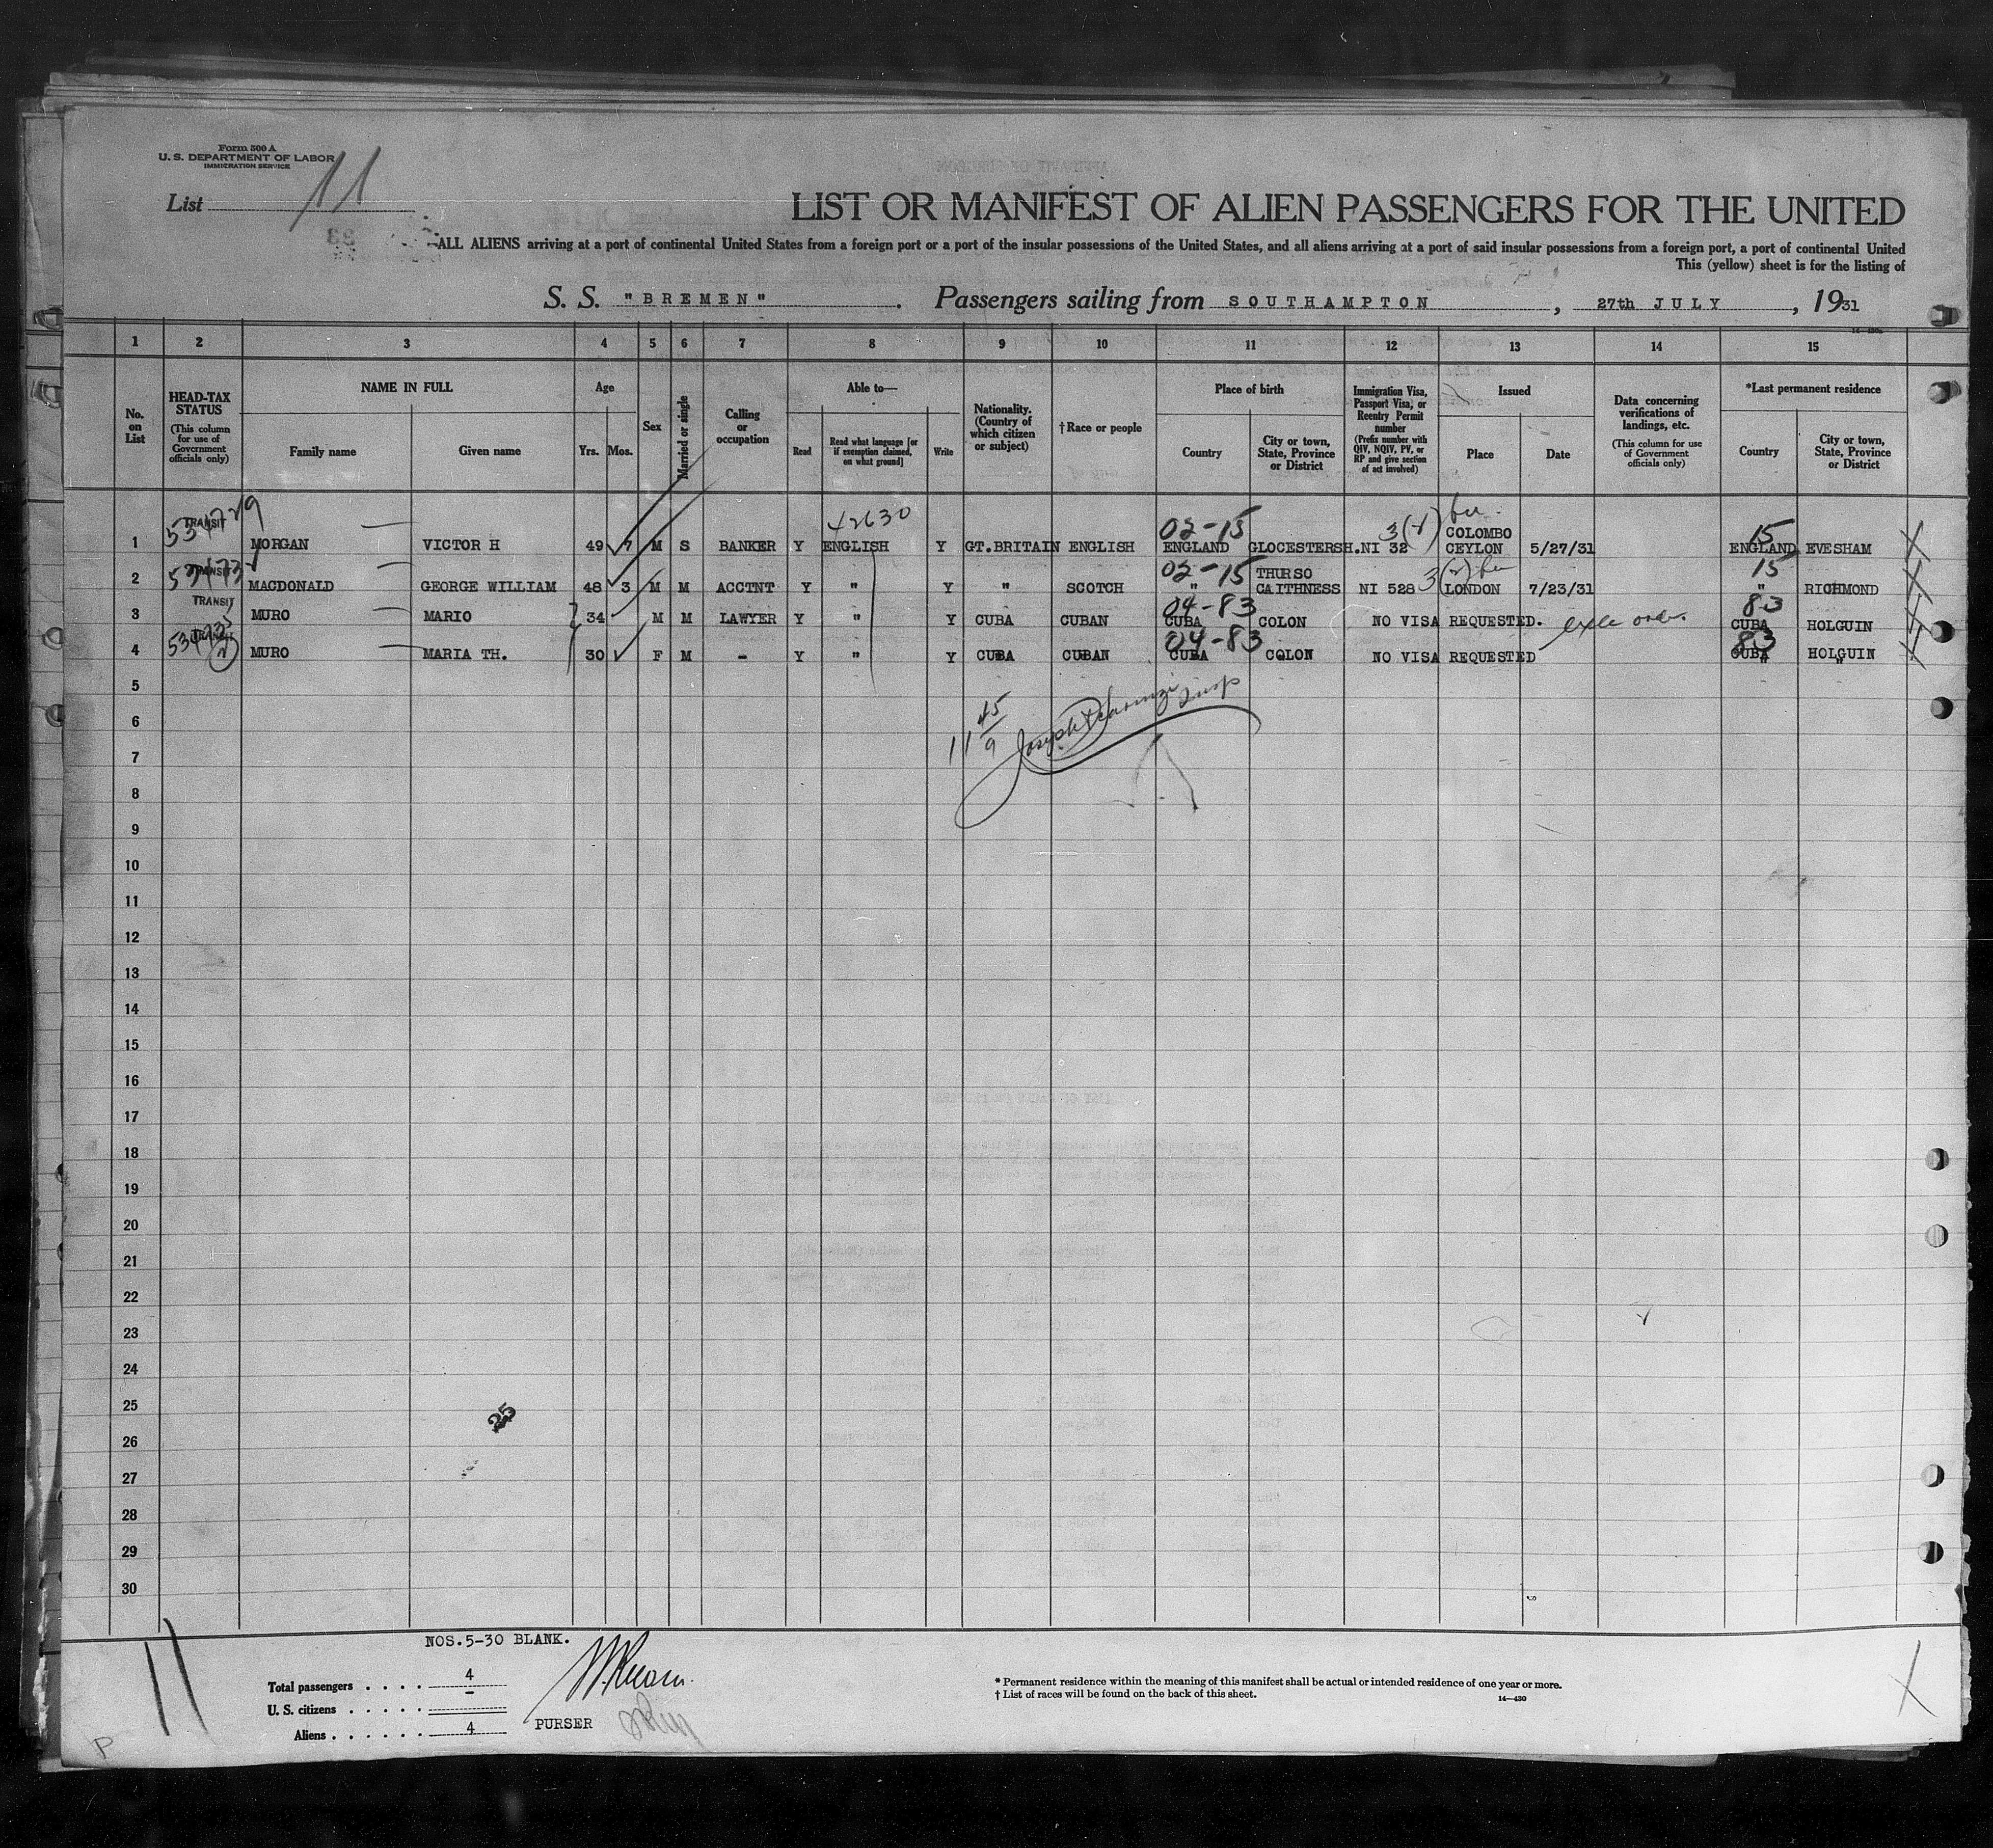 Form 500 A
U. S. DEPARTMENT OF LABOR
IMMIGRATION SERVICE
List 11
LIST OR MANIFEST OF ALIEN PASSENGERS FOR THE UNITED
ALL ALIENS arriving at a port of continental United States from a foreign port or a port of the insular possessions of the United States, and all aliens arriving at a port of said insular possessions from a foreign port, a port of continental United
This (yellow) sheet is for the listing of
S. S. "BREMEN" . Passengers sailing from SOUTHAMPTON , 27th JULY , 1931
1 2 3 4 5 6 7 8 9 10 11 12 13 14 15
No. on List
HEAD-TAX STATUS (This column for use of Government officials only)
NAME IN FULL
Family name Given name
Age
Yrs. Mos.
Sex
Married or single
Calling or occupation
Able to—
Read
Read what language [or if exemption claimed, on what ground]
Write
Nationality. (Country of which citizen or subject)
†Race or people
Place of birth
Country
City or town, State, Province or District
Immigration Visa, Passport Visa, or Reentry Permit number (Prefix number with QIV, NQIV, PV, or RP and give section of act involved)
Issued
Place Date
Data concerning verifications of landings, etc. (This column for use of Government officials only)
*Last permanent residence
Country
City or town, State, Province or District
42630
TRANSIT 02-15 3(v) COLOMBO 15
1 MORGAN VICTOR H 49 7 M S BANKER Y ENGLISH Y GT.BRITAIN ENGLISH ENGLAND GLOCESTERSH. NI 32 CEYLON 5/27/31 ENGLAND EVESHAM
TRANSIT 02-15 THURSO 15
2 MACDONALD GEORGE WILLIAM 48 3 M M ACCTNT Y " Y " SCOTCH " CAITHNESS NI 528 LONDON 7/23/31 " RICHMOND
TRANSIT 04-83 83
3 MURO MARIO 34 M M LAWYER Y " Y CUBA CUBAN CUBA COLON NO VISA REQUESTED. CUBA HOLGUIN
TRANSIT 04-83 83
4 MURO MARIA TH. 30 F M - Y " Y CUBA CUBAN CUBA COLON NO VISA REQUESTED CUBA HOLGUIN
5
6
7
8
9
10
11
12
13
14
15
16
17
18
19
20
21
22
23
24
25
26
27
28
29
30
11 45/9
Joseph
Insp
25
NOS.5-30 BLANK.
11
Total passengers . . . . 4
U. S. citizens . . . . . -
Aliens . . . . . 4
PURSER
* Permanent residence within the meaning of this manifest shall be actual or intended residence of one year or more.
† List of races will be found on the back of this sheet.
14—430
P